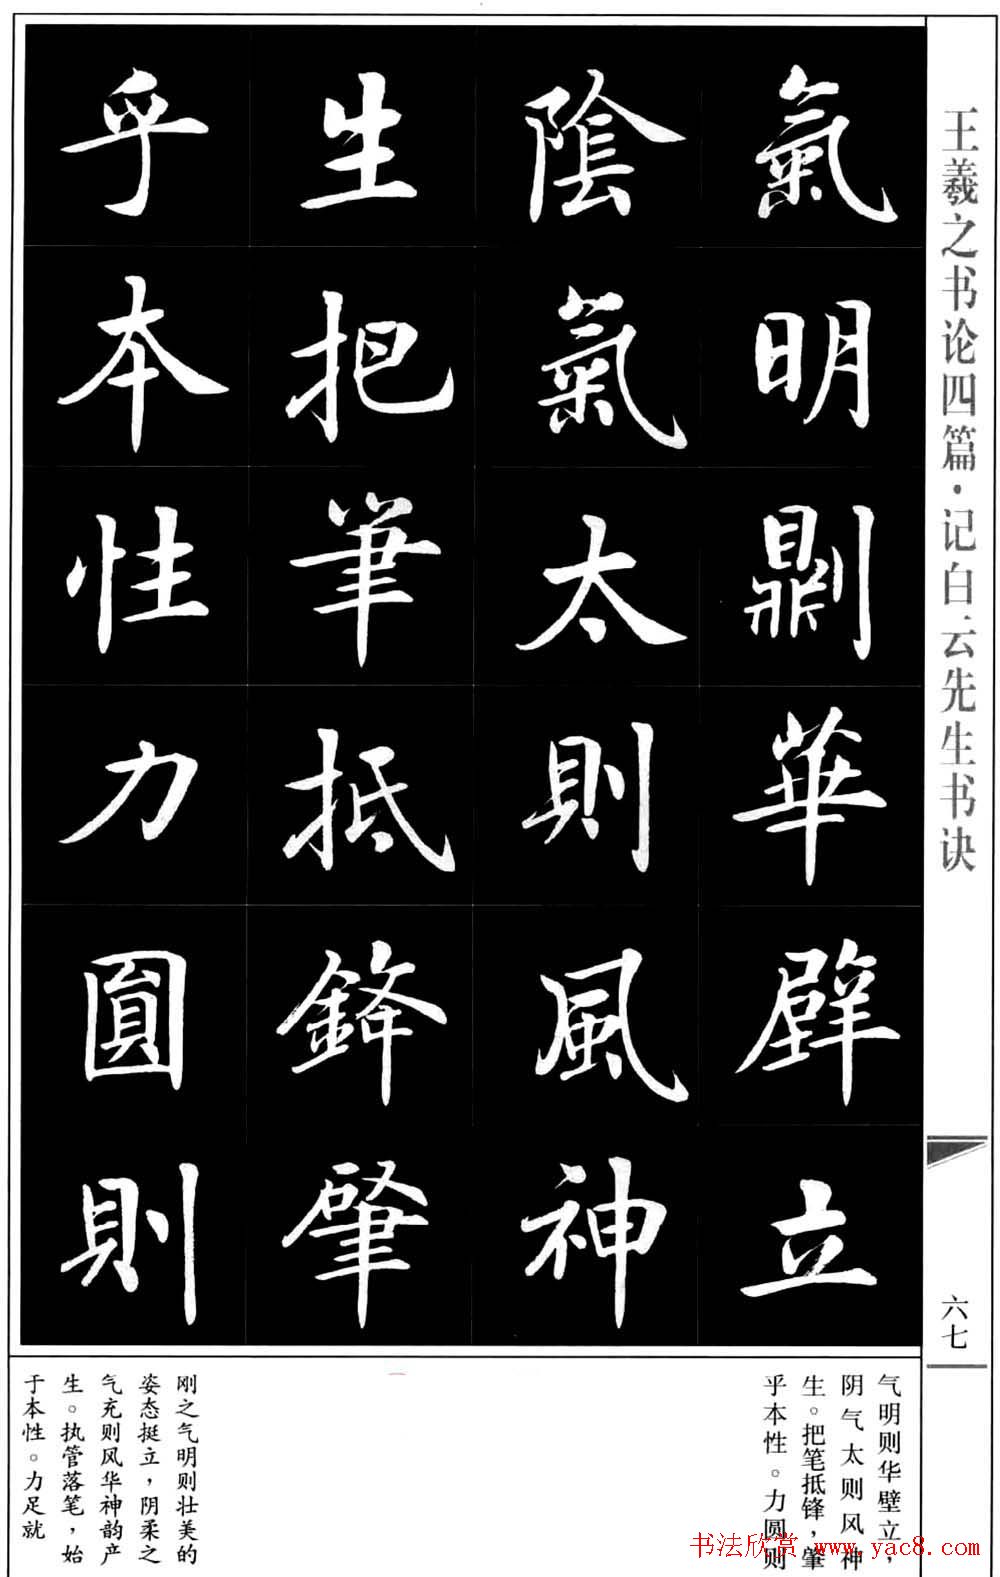 氣明鼎刂華壁立
陰氣太則風神
生把筆抵鋒肇
乎本性力圓則
王羲之书论四篇·记白云先生书诀
六七
气明则华壁立，
阴气太则风神
生。把笔抵锋，肇
乎本性。力圆则
刚之气明则壮美的
姿态挺立，阴柔之
气充则风华神韵产
生。执管落笔，始
于本性。力足就
书法欣赏 www.yac8.com